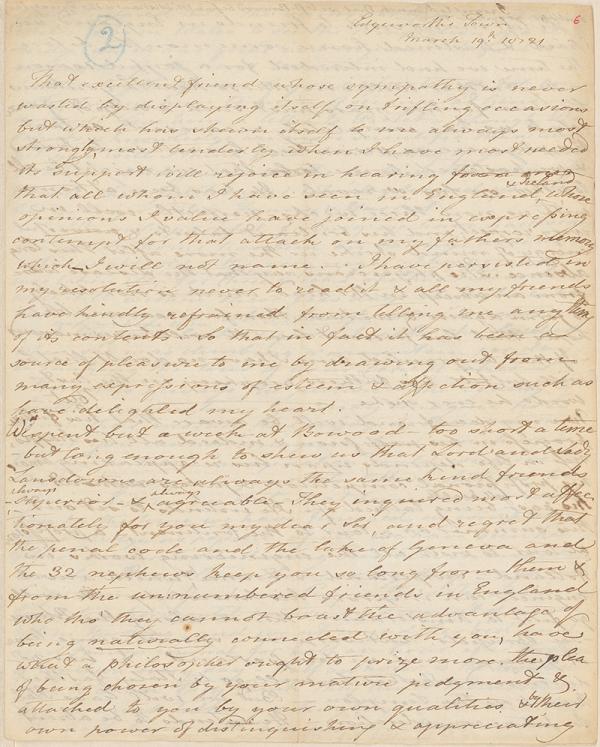 2
6
Edgeworth's Town
March 19th 1821
That excellent friend whose sympathy is never
wasted by displaying itself on trifling occasions
but which has shewn itself to me always most
strongly, most tenderly when I have most needed
its support will rejoice in hearing
that all whom I have seen in England & Ireland, whose
opinions I value have joined in expressing
contempt for that attack on my fathers memory
which I will not name. I have persisted in
my resolution never to read it & all my friends
have kindly refrained from telling me any thing
of its contents. So that in fact it has been a
source of pleasure to me by drawing out from
many expressions of esteem & affection such as
have delighted my heart.
We spent but a week at Bowood – too short a time
– but long enough to shew us that Lord and Lady
Lansdowne are always the same kind friends
– always superior – & always agreeable. They inquired most affec
tionately for you my dear Sir, and regret that
the penal code and the lake of Geneva and
the 32 nephews keep you so long from them &
from the unnumbered friends in England
who tho' they cannot boast the advantage of
being naturally connected with you, have
what a philosopher ought to prize more, the plea
of being chosen by your mature judgment &
attached to you by your own qualities & their
own power of distinguishing & appreciating